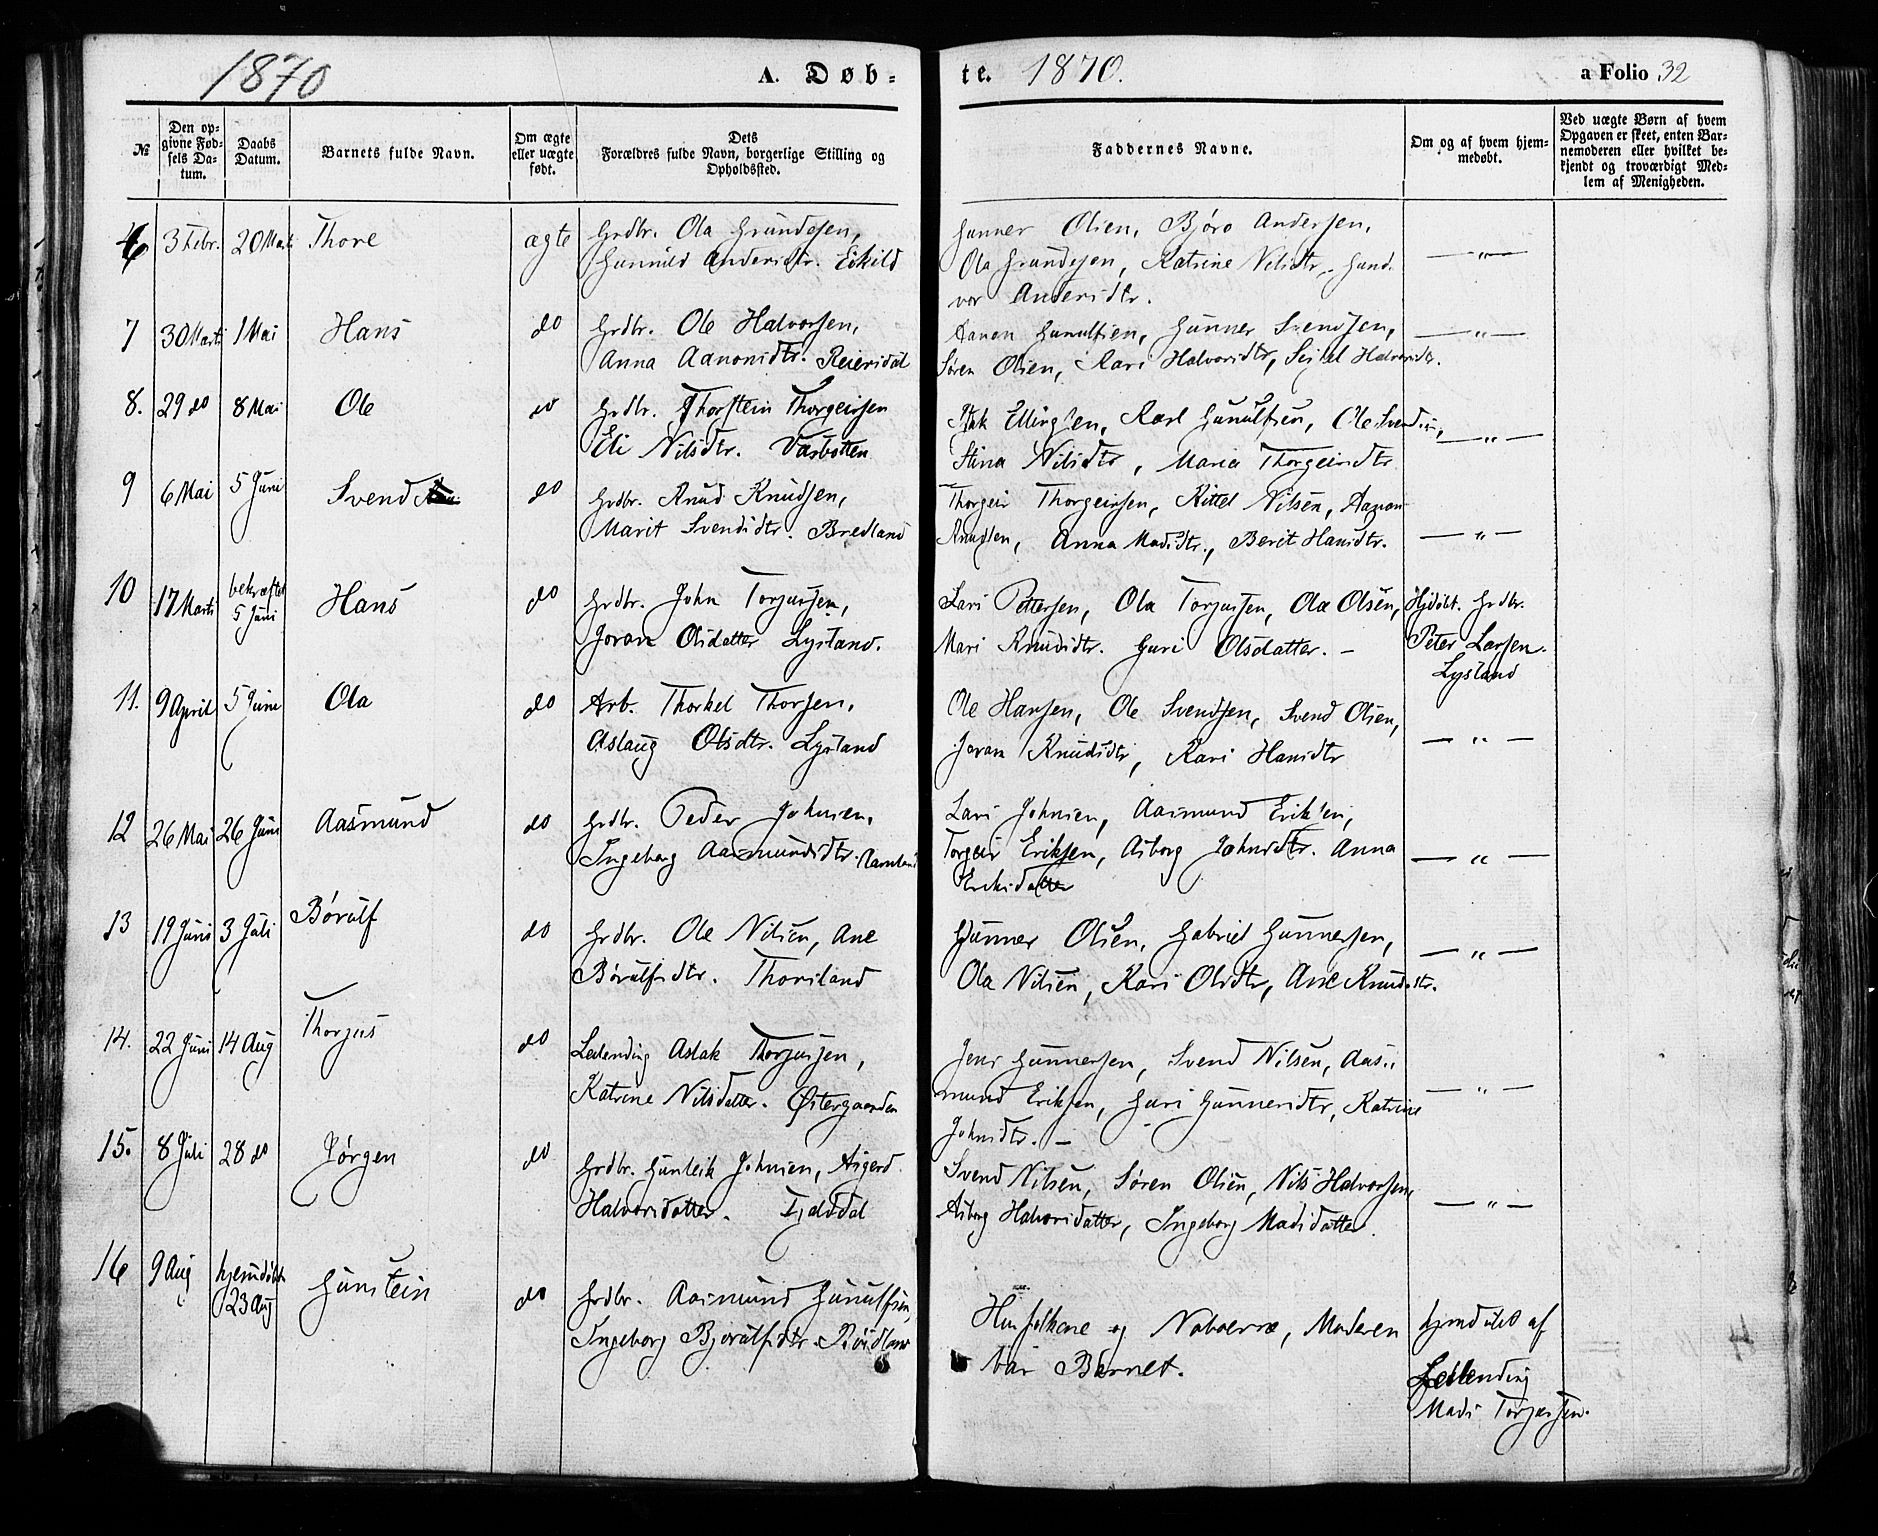 1870 A. Døb- te. 1870. a Folio 32
№ Den opgivne Fødsels Datum. Daabs Datum. Barnets fulde Navn. Om ægte eller uægte født. Dets Forældres fulde Navn, borgerlige Stilling og Opholdssted. Faddernes Navne. Om og af hvem hjemmedøbt. Ved uægte Børn af hvem Opgaven er skeet, enten Barnemoderen eller hvilket bekjendt og troværdigt Medlem af Menigheden.
6 3 Febr. 20 Mart Thore ægte Grdbr. Ola Grundesen, Gunner Olsen, Bjøro Andersen,
Gunnild Andersdtr. Eskild Ola Grundesen, Katrine Nilsdtr. Gund- — " —
vor Andersdtr.
7 30 Marts 1 Mai Hans do Grdbr. Ole Halvorsen, Aanon Gunulfsen, Gunner Svendsen, — " —
Anna Aanonsdtr. Reiersdal Søren Olsen, Kari Halvorsdtr, Halvorsdtr.
8. 29 do 8 Mai Ole do Grdbr. Thorstein Thorgeirsen Ellingsen, Karl Gunulfsen, Ole Svendsen,
Eli Nilsdtr. Vasbotten Stina Nilsdtr, Maria Thorgeirsdtr — " —
9 6 Mai 5 Juni Svend do Grdbr. Knud Knudsen, Thorgeir Thorgeirsen, Kittel Nilsen, Aanon
Marit Svendsdtr. Bredland Knudsen, Anna Madsdtr., Berit Hansdtr. — " —
10 17 Marts bekræftet 5 Juni Hans do Grdbr. John Torjussen, Lars Pettersen, Ola Torjussen, Ole Olsen, Hjdøbt. Grdbr.
Joran Olsdatter Lysland. Mari Knudsdtr. Guri Olsdatter. — Peter Larsen
Lysland
11. 9 April 5 Juni Ola do Arb. Thorkel Thorsen, Ole Hansen, Ole Svendsen, Svend Olsen,
Aslaug Olsdtr. Lysland Joran Knudsdtr, Kari Hansdtr — " —
12 26 Mai 26 Juni Aasmund do Grdbr. Peder Johnsen, Lars Johnsen, Aasmund Eriksen,
Ingeborg Aasmundsdtr. Torgeir Eriksen, Asborg Johnsdtr. Anna — " —
Eriksdatter
13 19 Juni 3 Juli Børulf do Grdbr. Ole Nilsen, Ane Gunner Olsen, Gabriel Gunnersen, — " —
Børulfsdtr. Thorsland Ola Nilsen, Kari Olsdtr, Ane Knudsdtr.
14. 22 Juni 14 Aug Thorjus do Leilending Aslak Thorjussen, Jens Gunnersen, Svend Nilsen, Aas-
Katrine Nilsdatter. Østergaarden mund Eriksen, Guri Gunnersdtr, Katrine — " —
Johnsdtr. —
15. 8 Juli 28 do Jørgen do Grdbr. Gunleik Johnsen, Asgerd Svend Nilsen, Søren Olsen, Nils Halvorsen,
Halvorsdatter. Asborg Halvorsdatter, Ingeborg Madsdatter. — " —
16 9 Aug hjemdøbt 23 Aug Gunstein do Grdbr. Aasmund Gunulfsen, Husfolkene og Naboerne, Moderen hjemdøbt af
Ingeborg Bjorulfsdtr. bar Barnet. Leilending
Mads Torjussen.